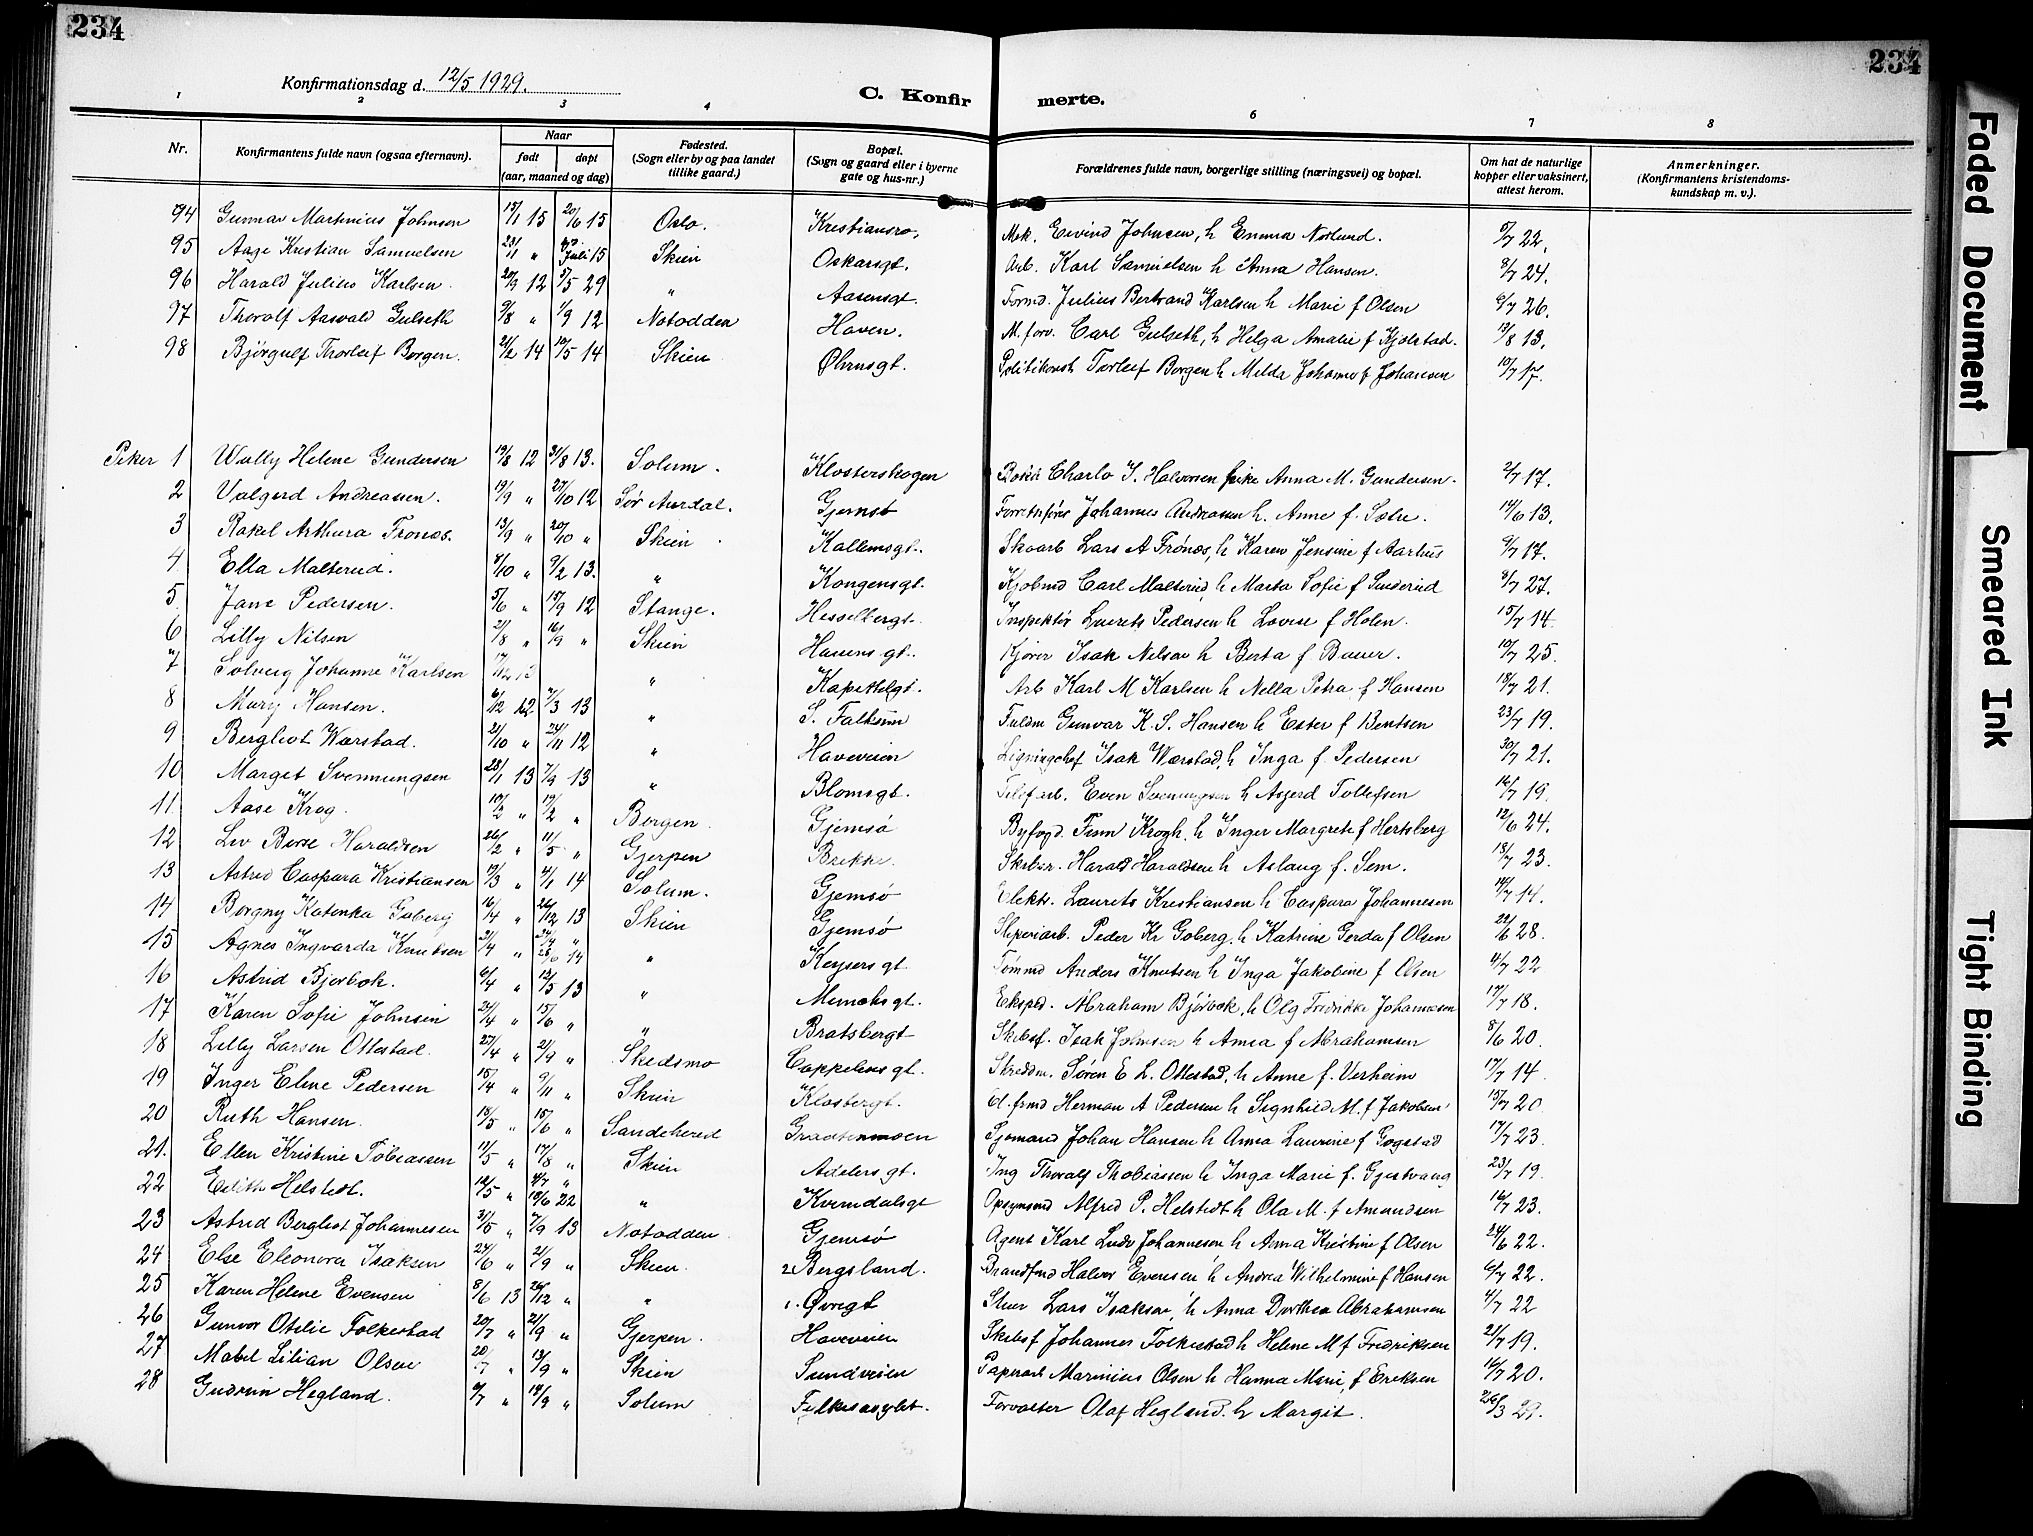 234
234
Konfirmationsdag d. 12/5 1929.
C. Konfirmerte.
1 2 3 4 5 6 7 8
Nr. Konfirmantens fulde navn (ogsaa efternavn). Naar født døpt (aar, maaned og dag) Fødested. (Sogn eller by og paa landet tillike gaard.) Bopæl. (Sogn og gaard eller i byerne gate og hus-nr.) Forældrenes fulde navn, borgerlige stilling (næringsvei) og bopæl. Om hat de naturlige kopper eller vaksinert, attest herom. Anmerkninger. (Konfirmantens kristendomskundskap m. v.).
94 Gunnar Martinius Johnsen 15/1 15 20/6 15 Oslo. Kristiansro. Mek. Eivind Johnsen, h Emma Norlund. 5/7 22.
95 Aage Kristian Samuelsen 23/1 " Juli 15 Skien Oskarsgt. Arb. Karl Samuelsen h Anna Hansen. 8/7 24.
96 Harald Julius Karlsen. 20/9 12 5/5 29 " Aasensgt. Formd. Julius Bertrand Karlsen h Marie f Olsen 6/7 26.
97 Thorolf Aasvald Gulseth 9/8 " 1/9 12 Notodden Haven. M. forv. Carl Gulseth, h Helga Amalie f Kjølstad. 19/8 13.
98 Bjørgulf Thorleif Borgen. 21/2 14 10/5 14 Skien Øhrnsgt. Politikonst Torleif Borgen h Milda Johanne f Johansen 10/7 17.
Piker 1 Wally Helene Gundersen 19/8 12 31/8 13. Solum. Klosterskogen Charlo J. Halvorsen pike Anna M. Gundersen. 2/7 17.
2 Valgerd Andreassen. 19/9 " 27/10 12 Sør Aurdal. Gjemsø Forretnfører Johannes Andreassen h. Anne f. Sætre. 14/6 13.
3 Rakel Arthura Frønæs. 13/9 " 20/10 " Skien Kallemsgt. Skoarb Lars A Frønæs, h Karen Jensine f Aarhus 9/7 17.
4 Ella Malterud. 4/10 " 9/2 13. " Kongensgt. Kjøbmd Carl Malterud h Marta Sofie f Sunderud 9/7 27.
5 Jane Pedersen. 5/6 " 15/9 12 Stange. Hesselbergt. Inspektør Laurits Pedersen h Lovise f Holen. 15/7 14
6 Lilly Nilsen 2/8 " 16/9 " Skien Hansensgt. Kjører Isak Nelson h Berta f. Bauer. 10/7 25.
7 Solveig Johanne Karlsen 17/12 12 " Kapittelgt. Arb Karl M Karlsen h Nella Petra f Hansen 18/7 21.
8 Mary Hansen. 6/12 12 7/3 13 " S. Falkum Fuldm Gunvar K. S. Hansen h Ester f Bentsen 23/7 19.
9 Bergliot Wærstad. 2/10 " 24/11 12 " Haveveien Ligningschef Isak Wærstad, h Inga f. Pedersen 30/7 21.
10 Margit Svennungsen 28/1 13 7/9 13 " Blomsgt. Telef arb. Even Svennungsen h Asgerd Tollefsen 16/7 19.
11. Aase Krog. 10/2 " 19/2 " Bergen Gjemsø Byfogd. Finn Krogh, h Inger Margrete f Hertsberg 12/6 24.
12 Liv Borse Haraldsen 26/2 " 11/5 " Gjerpen Brekke. Skibsr. Harald Haraldsen h Aslaug f. Sem. 18/7 23.
13 Astrid Caspara Kristiansen 19/3 " 4/1 14 Solum. Gjemsø Elektr. Laurits Kristiansen h Caspara Johannesen 14/7 14.
14 Borgny Katenka Goberg 16/4 " 26/12 13 Skien Gjemsø Sliperiarb. Peder Kr Goberg, h Katrine Gerda f Olsen 22/6 28.
15 Agnes Ingvarda Knudsen 21/4 " 14 " Keysersgt Tømmd Anders Knutsen h Inga Jakobine f Olsen 4/7 22
16 Astrid Bjerbæk. 6/4 " 12/5 13 " Munchsgt. Eksped. Abraham Bjørbæk, h Olg Fredrikke Johannesen 17/7 18.
17 Karen Sofie Johnsen 24/4 " 15/6 " " Bratsbergt Skibsf. Isak Johnsen h Anna f Abrahamsen 8/6 20.
18 Lilly Larsen Ottestad. 27/4 " 21/9 " Skedsmo Cappelensgt. Skreddm. Søren E L. Ottestad, h Anne f. Verheim 17/7 14
19 Inger Elene Pedersen 15/4 " 9/11 " Skien Klosbergt. El. frmd Herman A Pedersen h Signhild M. f Jakobsen 15/7 20
20 Ruth Hansen. 15/5 " 15/6 " Sandehered Graatenmoen Sjømand Johan Hansen h Anna Laurine f Gogstad 17/7 23.
21. Ellen Kristine Tobiassen 11/5 " 17/8 " Skien Adelersgt. Ing Thoralf Thobiassen h Inga Marie f. Gjestvang 23/7 19.
22 Edith Helstedt. 12/5 " 4/7 " 18/6 22 " Kverndalsgt Opsynsmd Alfred P. Helstedt h Ola M. f Amundsen 16/7 23.
23 Astrid Bergliot Johannesen 31/5 " 7/9 13 Notodden Gjemsø Agent Karl Ludv Johannesen h Anna Kristine f Olsen 24/6 22.
24 Else Eleonora Isaksen 24/6 " 21/9 " Skien. 2 Bergsland. Brandfmd Halvor Evensen h Andrea Wilhelmine f Hansen 6/7 22.
25 Karen Helene Evensen 8/6 13 26/12 " " 1. Øvregt Lars Isaksen h Anna Dorthea Abrahamsen 4/7 22
26 Gunvor Otilie Folkestad 20/7 " 21/9 " Gjerpen. Haveveien Skibsf Johannes Folkestad h Helene M f Fredriksen 21/7 19.
27 Mabel Lilian Olsen 20/7 " 13/9 " Skien Sundveien Papirarb Marinius Olsen h Hanna Marie f Eriksen 16/7 20.
28 Gudrun Hegland. 6/7 " 14/9 " Solum Folkesasylet. Forvalter Olaf Hegland. h Margit. 26/3 29.
Faded Document
Smeared Ink
Tight Binding